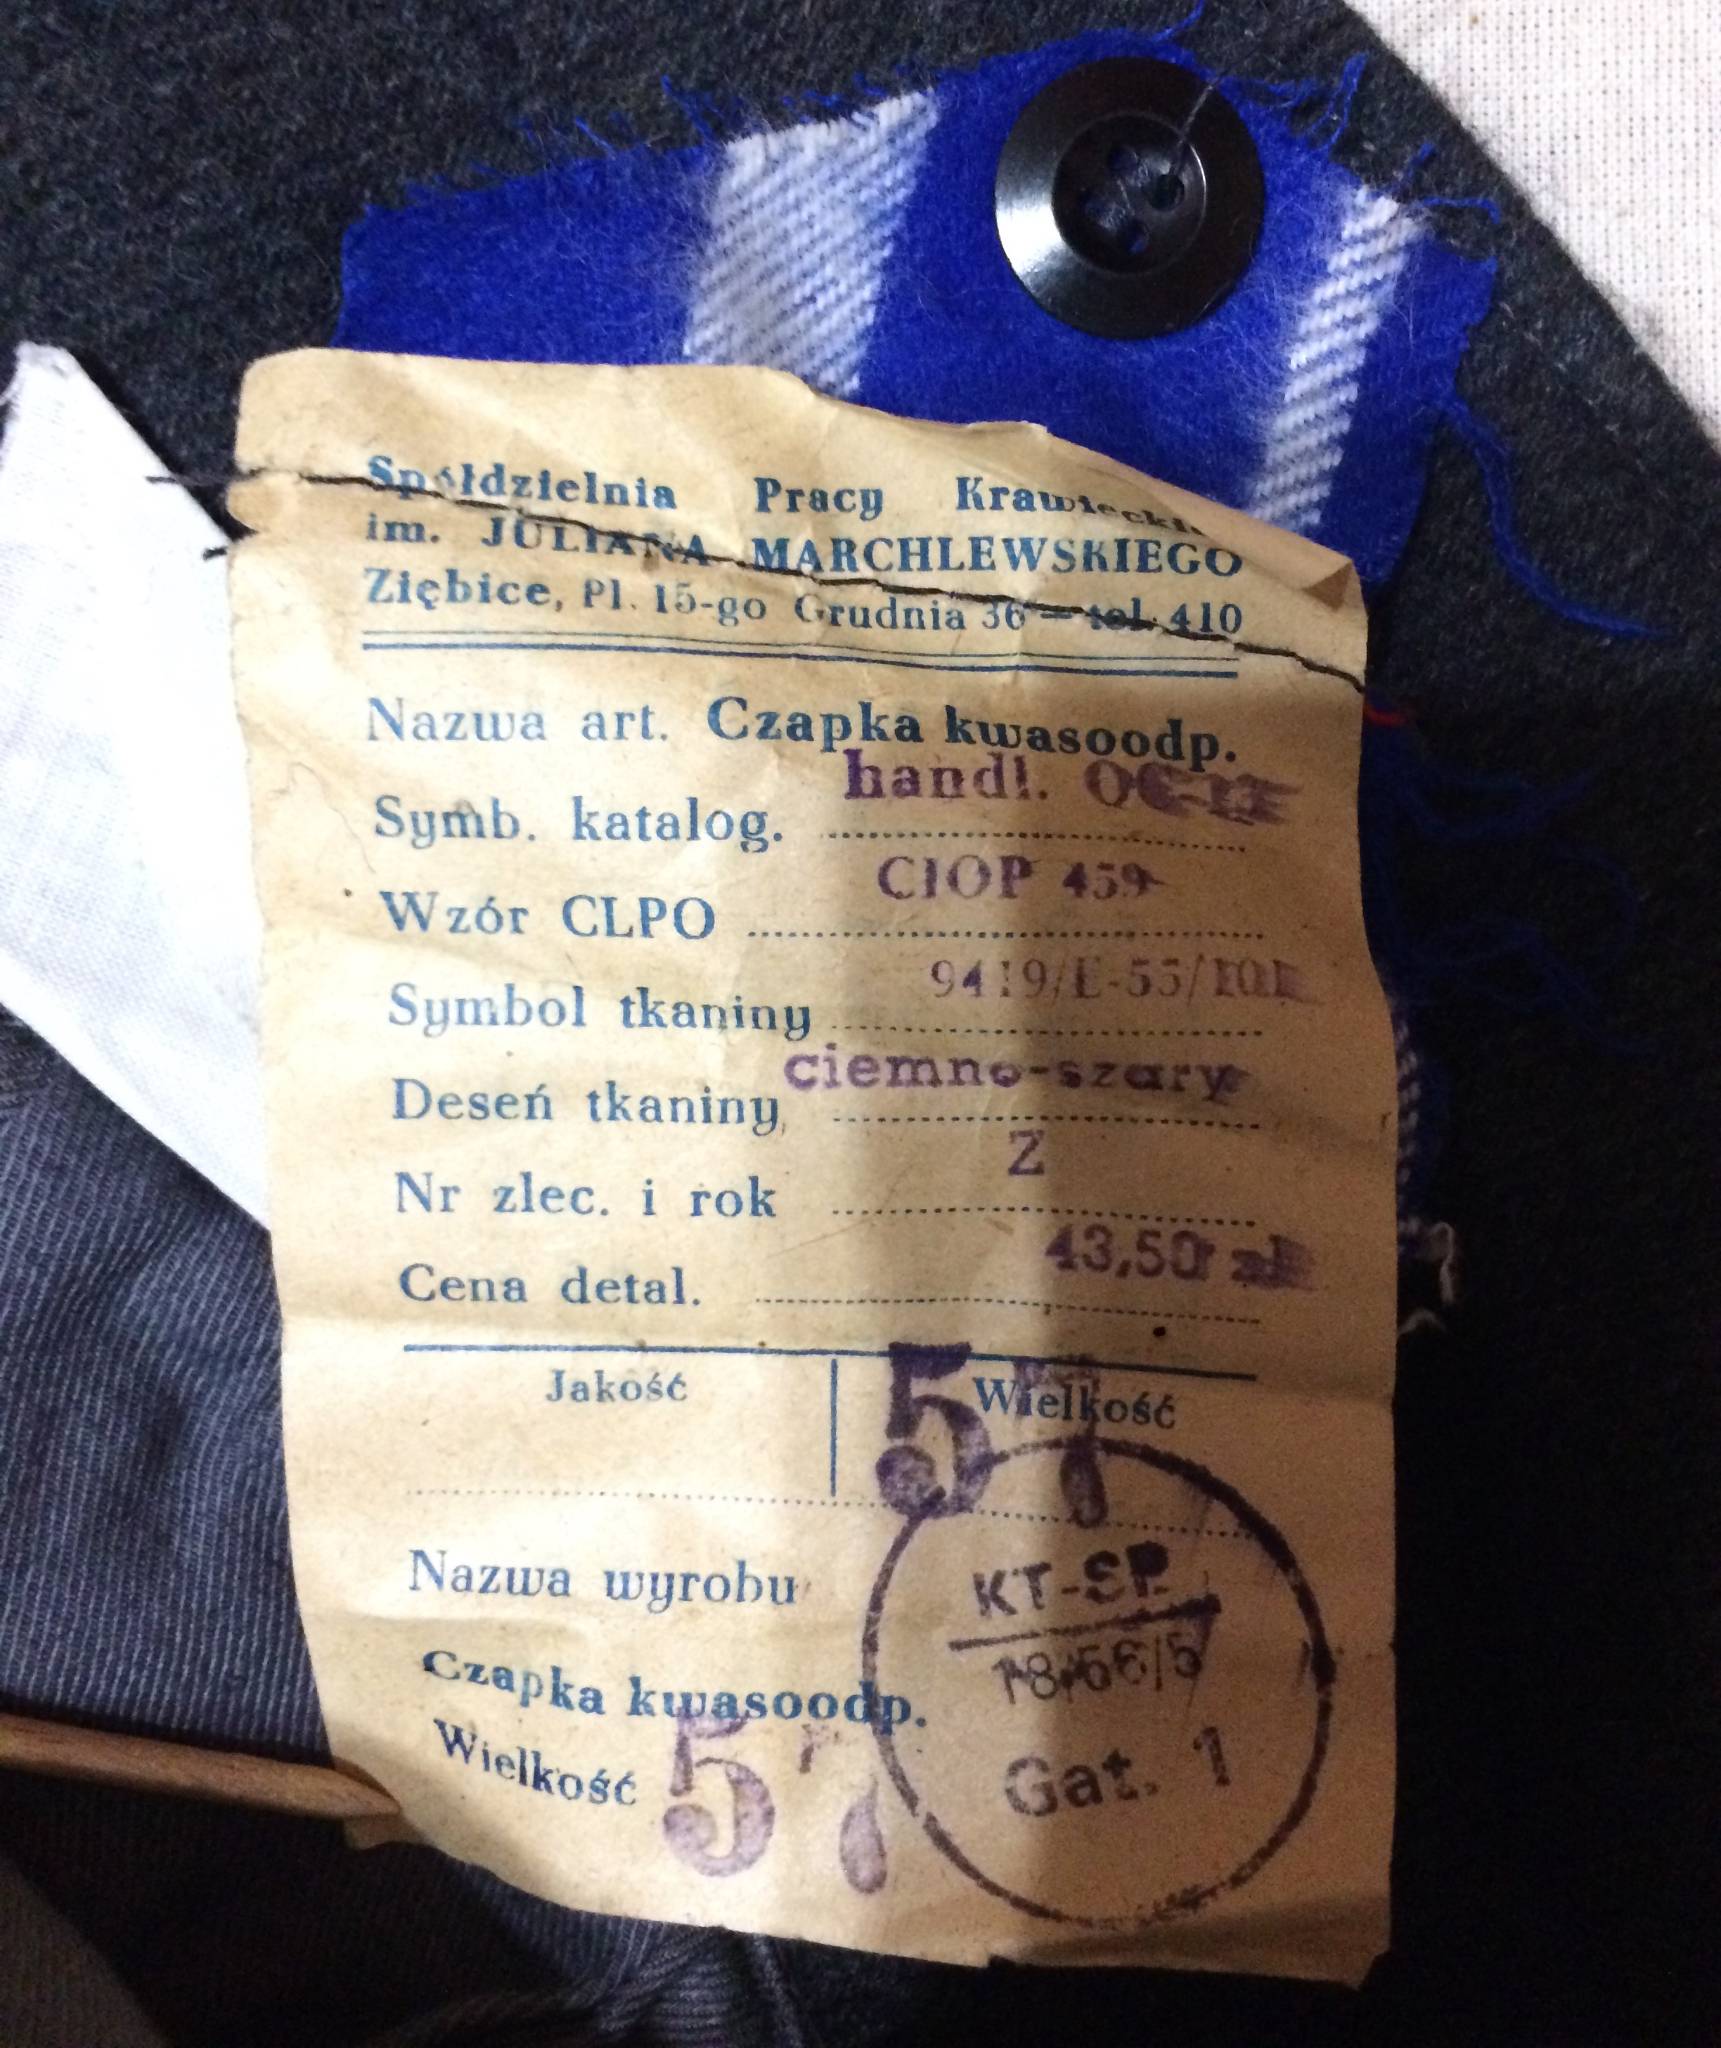 Spółdzielnia Pracy Krawiecki
im. JULIANA MARCHLEWSKIEGO
Ziębice, Pl. 15-go Grudnia 36 — tel. 410
Nazwa art. Czapka kwasoodp.
handl.
Symb. katalog.
CIOP 459
Wzór CLPO
Symbol tkaniny
ciemno-szary
Deseń tkaniny
Z
Nr zlec. i rok
43,50 zł
Cena detal.
Jakość Wielkość
57
KT-SP
18/56/5
Gat. 1
Nazwa wyrobu
Czapka kwasoodp.
Wielkość 57